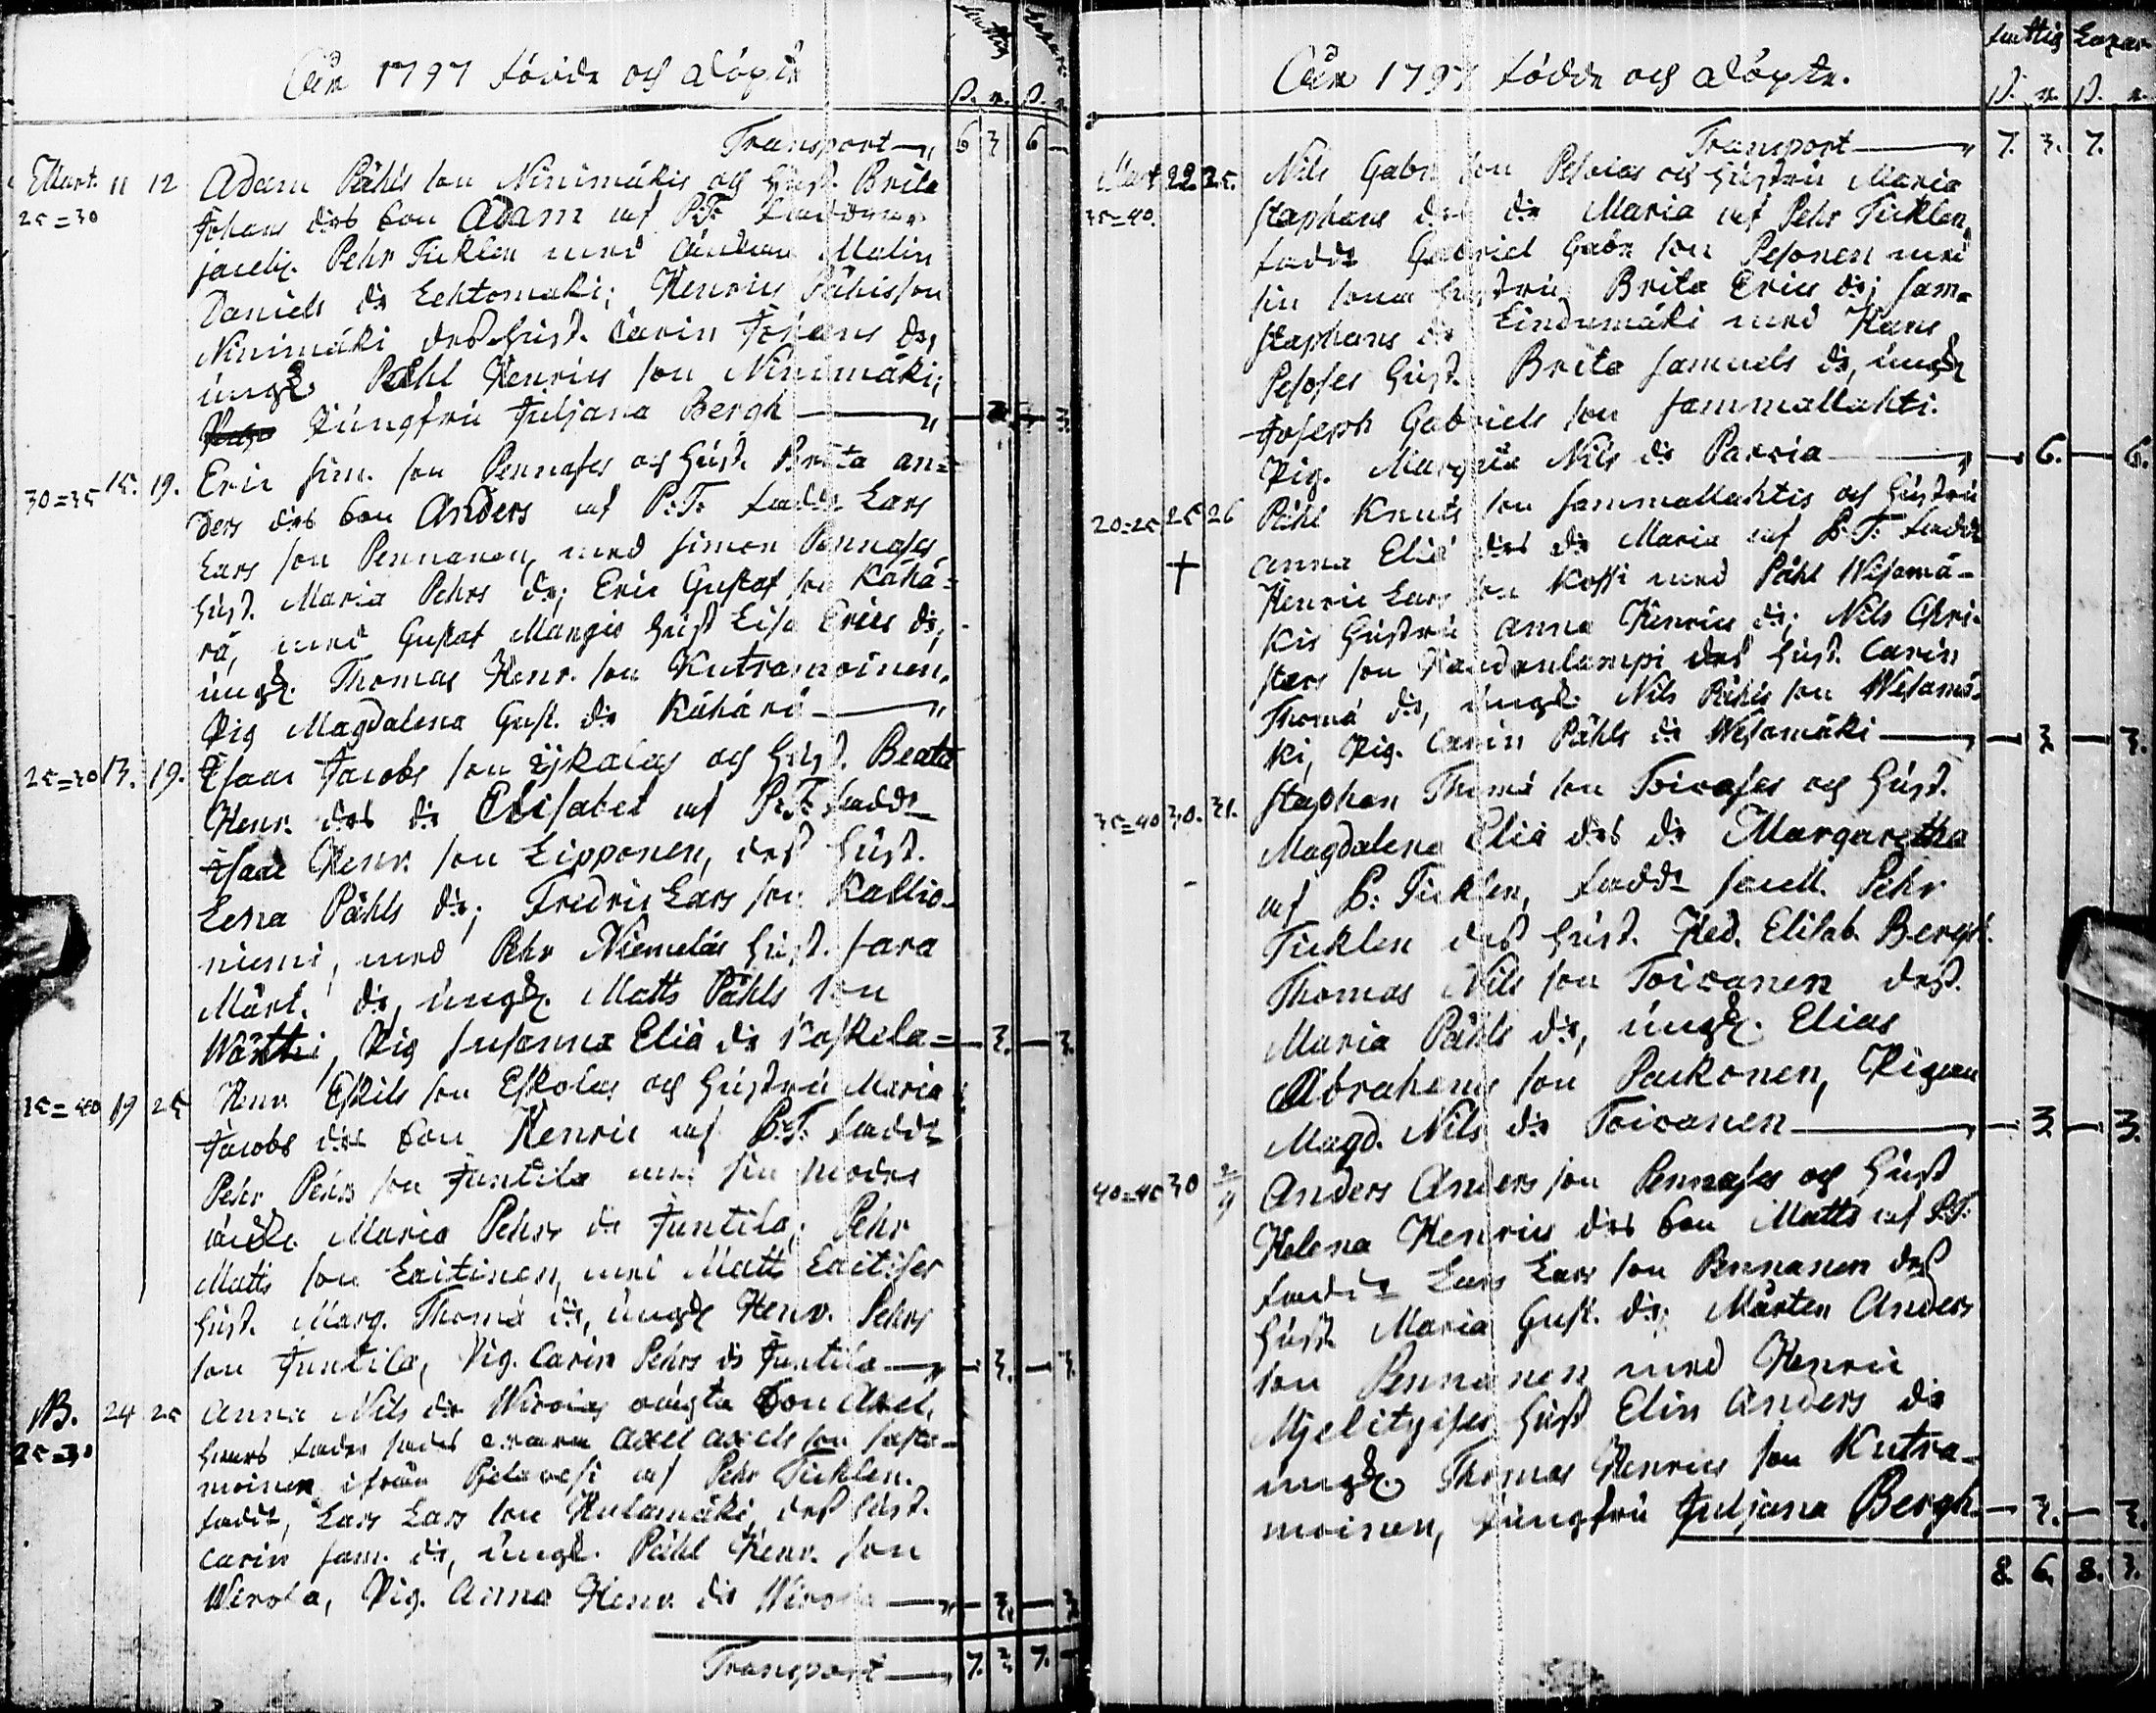 Åhr 1797 födde och döpte
fattig Lazar.
S. r. S. r.
Transport 6 3 6 —
Mart. 11 12 Adam Påhls son Ninimäkis och hust. Brita
25=30 Johans dr dess son Adam af P:T: faddrar
jacelij. Pehr Ticklen med änkan Malin
Daniels dr Lehtomäki; Henric Påhlsson
Ninimäki dess hust. Carin Johans dr,
ungk. Påhl Henrics son Ninimäki,
Jungfru Juljana Bergh — 3. — 3
30=35 15. 19. Eric Sim. son Pennases och hust. Brita An=
ders drs son Anders af P:T: fadd: Lars
Lars son Pennanen, med Simon Pennases
hust. Maria Pehrs dr; Eric Gustaf son Kähä=
rä, med Gustaf Mangis hust Lisa Erics dr,
ungk. Thomas Henr. son Kutramoinen,
Pig Magdalena Gust. dr Kähärä —
25=30 13. 19. Isaac Jacobs son Ijkalas och hust. Beata
Henr. drs dr Elisabet af P:T: fadd:
Isaac Henr. son Lipponen, dess hust.
Lena Påhls dr; Fredric Lars son Kallio-
niemi, med Pehr Niemeläs hust. Sara
Mårt. dr, ungk. Matts Påhls son
Wärtti, Pig Susanna Eliæ dr Koskela= — 3. — 3.
35=40 19 25 Henr. Eskils son Eskolas och hustru Maria
Jacobs drs son Henric af P:T: fadd:
Pehr Pehrs son Juntila med sin moder
änk. Maria Pehrs dr Juntila; Pehr
Matts son Laitinen, med Matts Laitises
hust. Marg. Thomæ dr, ungk Henr. Pehrs
son Juntila, Pig. Carin Pehrs dr Juntila — 3. — 3.
NB. 24 25 Anna Nils dr Wirolas oägta son Axel,
25=30 hvars fader sades vara Axel Axels son Sasta-
moinen ifrån Pjelavesi af Pehr Ticklen.
fadd:, Lars Lars son Hulamäki dess hust.
Carin Sam. dr, ungk. Påhl Henr. son
Wirola, Pig. Anna Henr. dr Wirola — 3. — 3
Transport — 7. 3 7. —
Åhr 1797 födde och döpte.
fattig Lazar
S. r. S. r.
Transport — 7. 3. 7.
Mart 22. 25. Nils Gabr. son Pesolas och hustru Maria
35=40. Staphans drs dr Maria af Pehr Ticklen,
fadd: Gabriel Gabr. son Pesonen med
sin sons hustru Brita Erics dr; Sam.
Staphans dr Lindumäki med Hans
Pesoses hust. Brita Samuels dr, ungk
Joseph Gabriels son Sammallahti.
Pig. Margeta Nils dr Parvia — 6. — 6.
20=25 25 26 Påhl Knuts son Sammallahtis och hustru
+ Anna Eliæ drs dr Maria af P:T: fadd:
Henric Lars son Kossi med Påhl Wesamä-
kis hustru Anna Henrics dr; Nils Chri-
sters son Haudenlampi dess hust. Carin
Thomæ dr, ungk. Nils Påhls son Wesamä-
ki, Pig. Carin Påhls dr Wesamäki — 3. — 3.
35=40 30. 31. Staphan Thomæ son Toivases och hust.
Magdalena Eliæ drs dr Margaretha
af P: Ticklen, fadd: Pehr
Ticklen dess hust. Hed. Elisab. Bergh.
Thomas Nils son Toivanen dess.
Maria Påhls dr, ungk. Elias
Abrahams son Paukonen, Pigan
Magd. Nils dr Toivanen — 3. — 3.
40=45 30 2/4 Anders Anders son Pennases och hust
Helena Henrics drs son Matts af P.T.
fadd: Lars Lars son Pennanen dess
hust. Maria Gust. dr; Mårten Anders
son Pennanen med Henric
Mjelityises hust Elin Anders dr
ungk. Thomas Henrics son Kutra-
moinen, Jungfru Juljana Bergh. — 3. — 3.
8. 6. 8. 3.